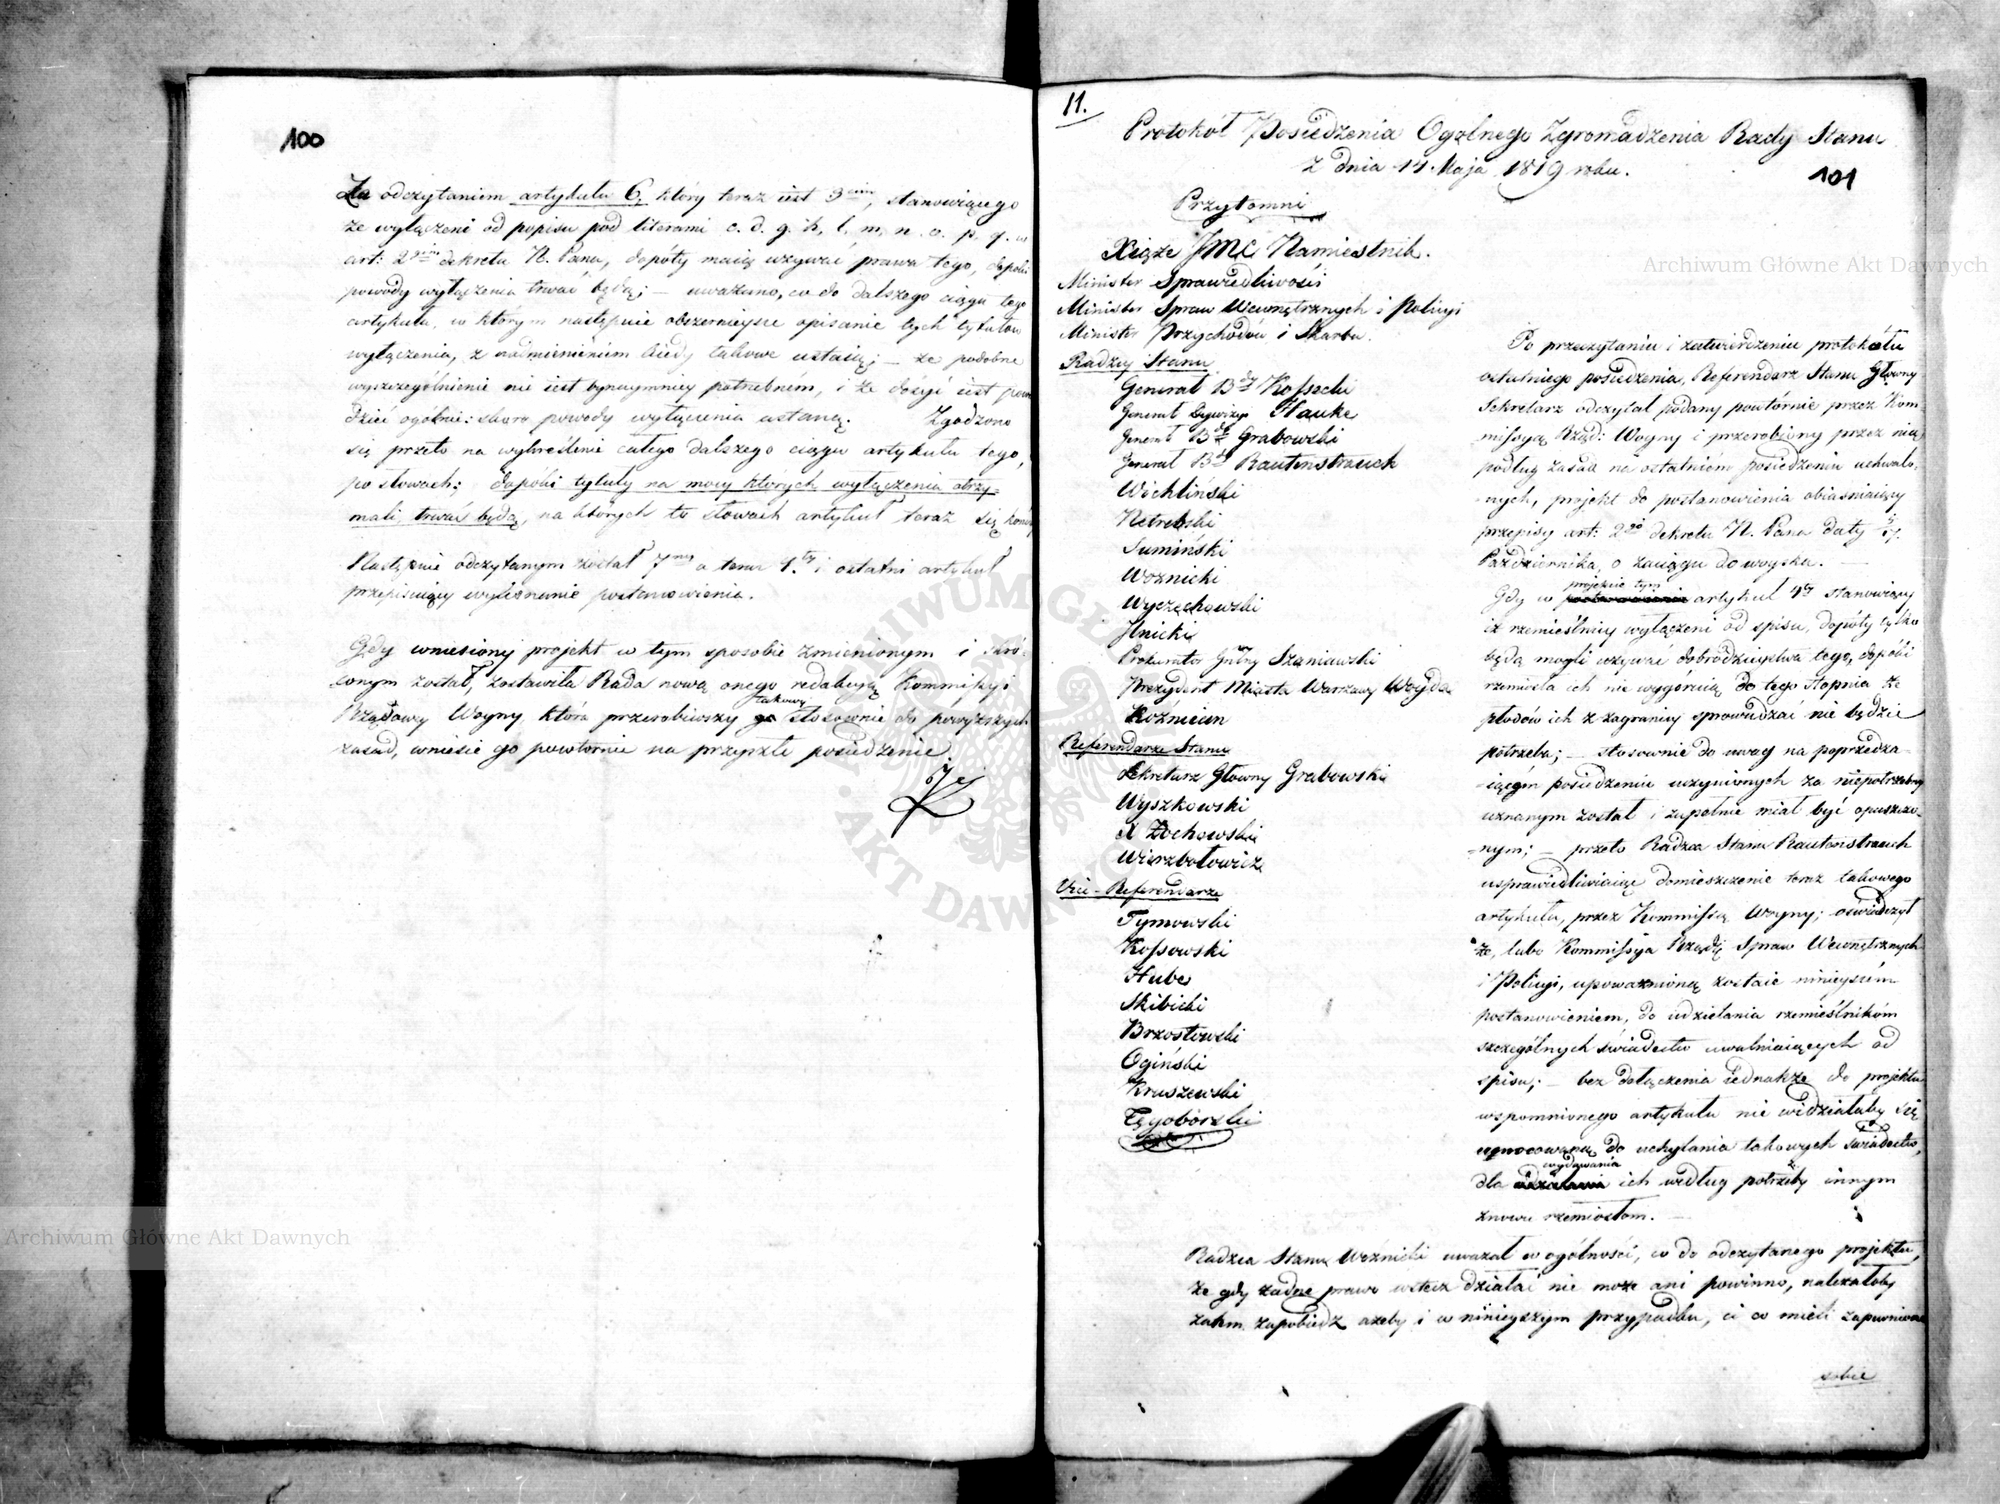 100
Za odczytaniem artykułu 6. który teraz iest 3cim, stanowiącego
że wyłączeni od popisu pod literami c. d. g. h. l. m. n. o. p. q. w
art: 2gim dekretu N. Pana, dopóty maią używać prawa tego, dopóki
powody wyłączenia trwać będą; — uważano, co do dalszego ciągu tego
artykułu, w którym następuie obszernieysze opisanie tych tytułów
wyłączenia, z nadmienieniem kiedy takowe ustaią; — że podobne
wyszczególnienie nie iest bynaymniey potrzebném, i że dosyć iest powie
dzieć ogólnie: skoro powody wyłączenia ustaną. Zgodzono
się przeto na wykreślenie całego dalszego ciągu artykułu tego,
po słowach: dopóki tytuły na mocy których wyłączenia otrzy-
mali, trwać będą, na których to słowach artykuł teraz się kończy
Następnie odczytanym został 7my a teraz 4.ty i ostatni artykuł
przepisuiący wykonanie postanowienia.
Gdy wniesiony projekt w tym sposobie zmienionym i skró-
conym został, zostawiła Rada nową onego redakcyą Kommissyi
Rządowy Woyny, która przerobiwszy takowy stosownie do powyższych
zasad, wniesie go powtórnie na przyszłe posiedzenie.
11.
Protokół Posiedzenia Ogólnego Zgromadzenia Rady Stanu
z dnia 14. Maja 1819 roku.
101
Przytomni
Xiąże JMC Namiestnik.
Minister Sprawiedliwości
Minister Spraw Wewnętrznych i Policyi
Minister Przychodów i Skarbu.
Radzcy Stanu
Generał Bdy Kossecki
Generał Dywizyi Hauke
Generał Bdy Grabowski
Generał Bdy Rautenstrauch
Wichliński
Netrebski
Sumiński
Woznicki
Wyczechowski
Jlnicki
Prokurator Gnlny Szaniawski
Prezydent Miasta Warszawy Woyda
Koźmian
Referendarze Stanu
Sekretarz Głowny Grabowski
Wyszkowski
X Żochowski
Wierzbołowicz
Vice-Referendarze
Tymowski
Kossowski
Hube
Skibicki
Brzostowski
Ogiński
Kruszewski
Tęgoborski
Po przeczytaniu i zatwierdzeniu protokółu
ostatniego posiedzenia, Referendarz Stanu Główny
Sekretarz odczytał podany powtórnie przez Kom-
missyą Rząd: Woyny i przerobiony przez nią
podług zasad na ostatniém posiedzeniu uchwalo-
nych, projekt do postanowienia obiaśniaiący
przepisy art: 2go dekretu N. Pana daty
Października, o zaciągu do woyska. —
Gdy w projekcie tym artykuł 4ty stanowiący
iż rzemieślnicy wyłączeni od spisu, dopóty tylko
będą mogli używać dobrodzieystwa tego, dopóki
rzemiosła ich nie wygóruią do tego stopnia że
płodów ich z zagranicy sprowadzać nie będzie
potrzeba; — stosownie do uwag na poprzedza-
iącém posiedzeniu uczynionych za niepotrzebny
uznanym został i zupełnie miał być opuszczo-
nym; — przeto Radzca Stanu Rautenstrauch
usprawiedliwiaiąc domieszczenie teraz takowego
artykułu, przez Kommissią Woyny; oświadczył
że, lubo Kommissya Rządz: Spraw Wewnętrznych
i Policyi, upoważnioną zostaie ninieyszém
postanowieniem, do udzielania rzemieślnikóm
szczególnych świadectw uwalniaiących od
spisu; — bez dołączenia iednakże do projektu
wspomnionego artykułu nie widziałaby się
umocowaną do uchylania takowych świadectw,
dla wydawania ich według potrzeby innym
znowu rzemiosłom. —
Radzca Stanu Woźnicki uważał w ogólności, co do odczytanego projektu,
że gdy żadne prawo wstecz działać nie może ani powinno, należałoby
zatem zapobiedz ażeby i w ninieyszym przypadku, ci co mieli zapewnione
sobie
Archiwum Główne Akt Dawnych
Archiwum Główne Akt Dawnych
ARCHIWUM GŁÓWNE AKT DAWNYCH